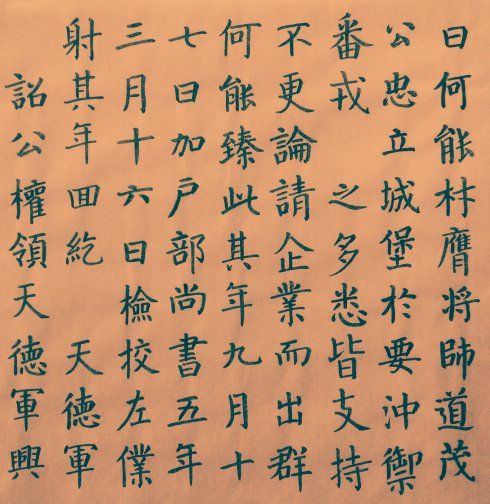 曰何能材膺将師道茂
公忠立城堡於要沖禦
番戎 之多悉皆支持
不更論請企業而出群
何能臻此其年九月十
七日加户部尚書五年
三月十六日檢校左僕
射其年囬紇 天德軍
詔公權領天德軍興